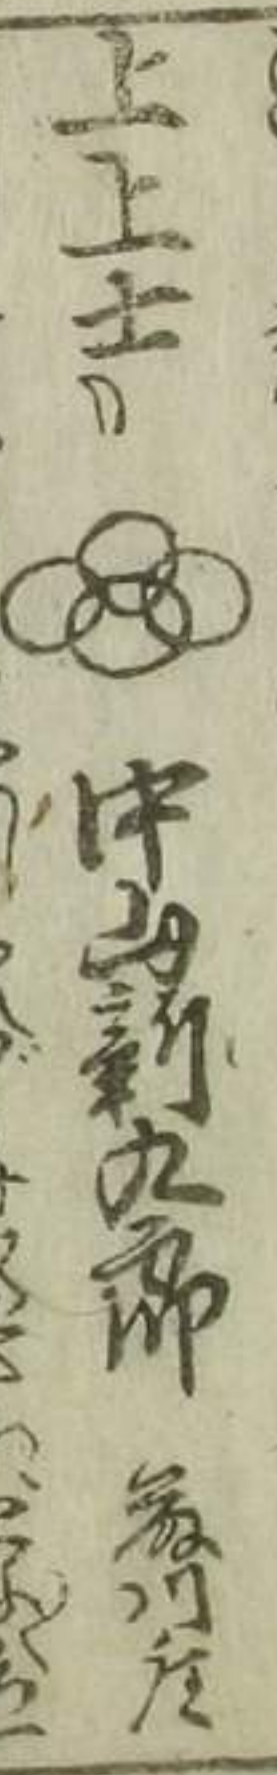 上上吉 中山新九郎 藤川座